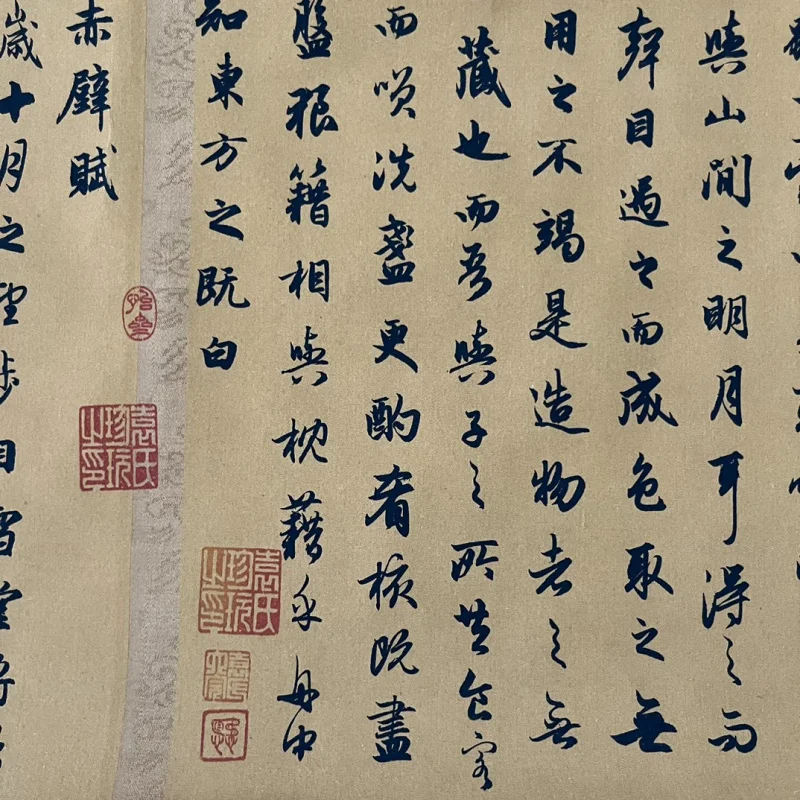 與山間之明月耳得之而
聲目遇之而成色取之無
用之不竭是造物者之無
藏也而吾與子之所共食客
而咲洗盞更酌肴核既盡
盤狼籍相與枕藉乎舟中
知東方之既白
赤壁賦
歲十月之望步自雪堂將
袁氏珍玩之印
袁氏珍玩之印